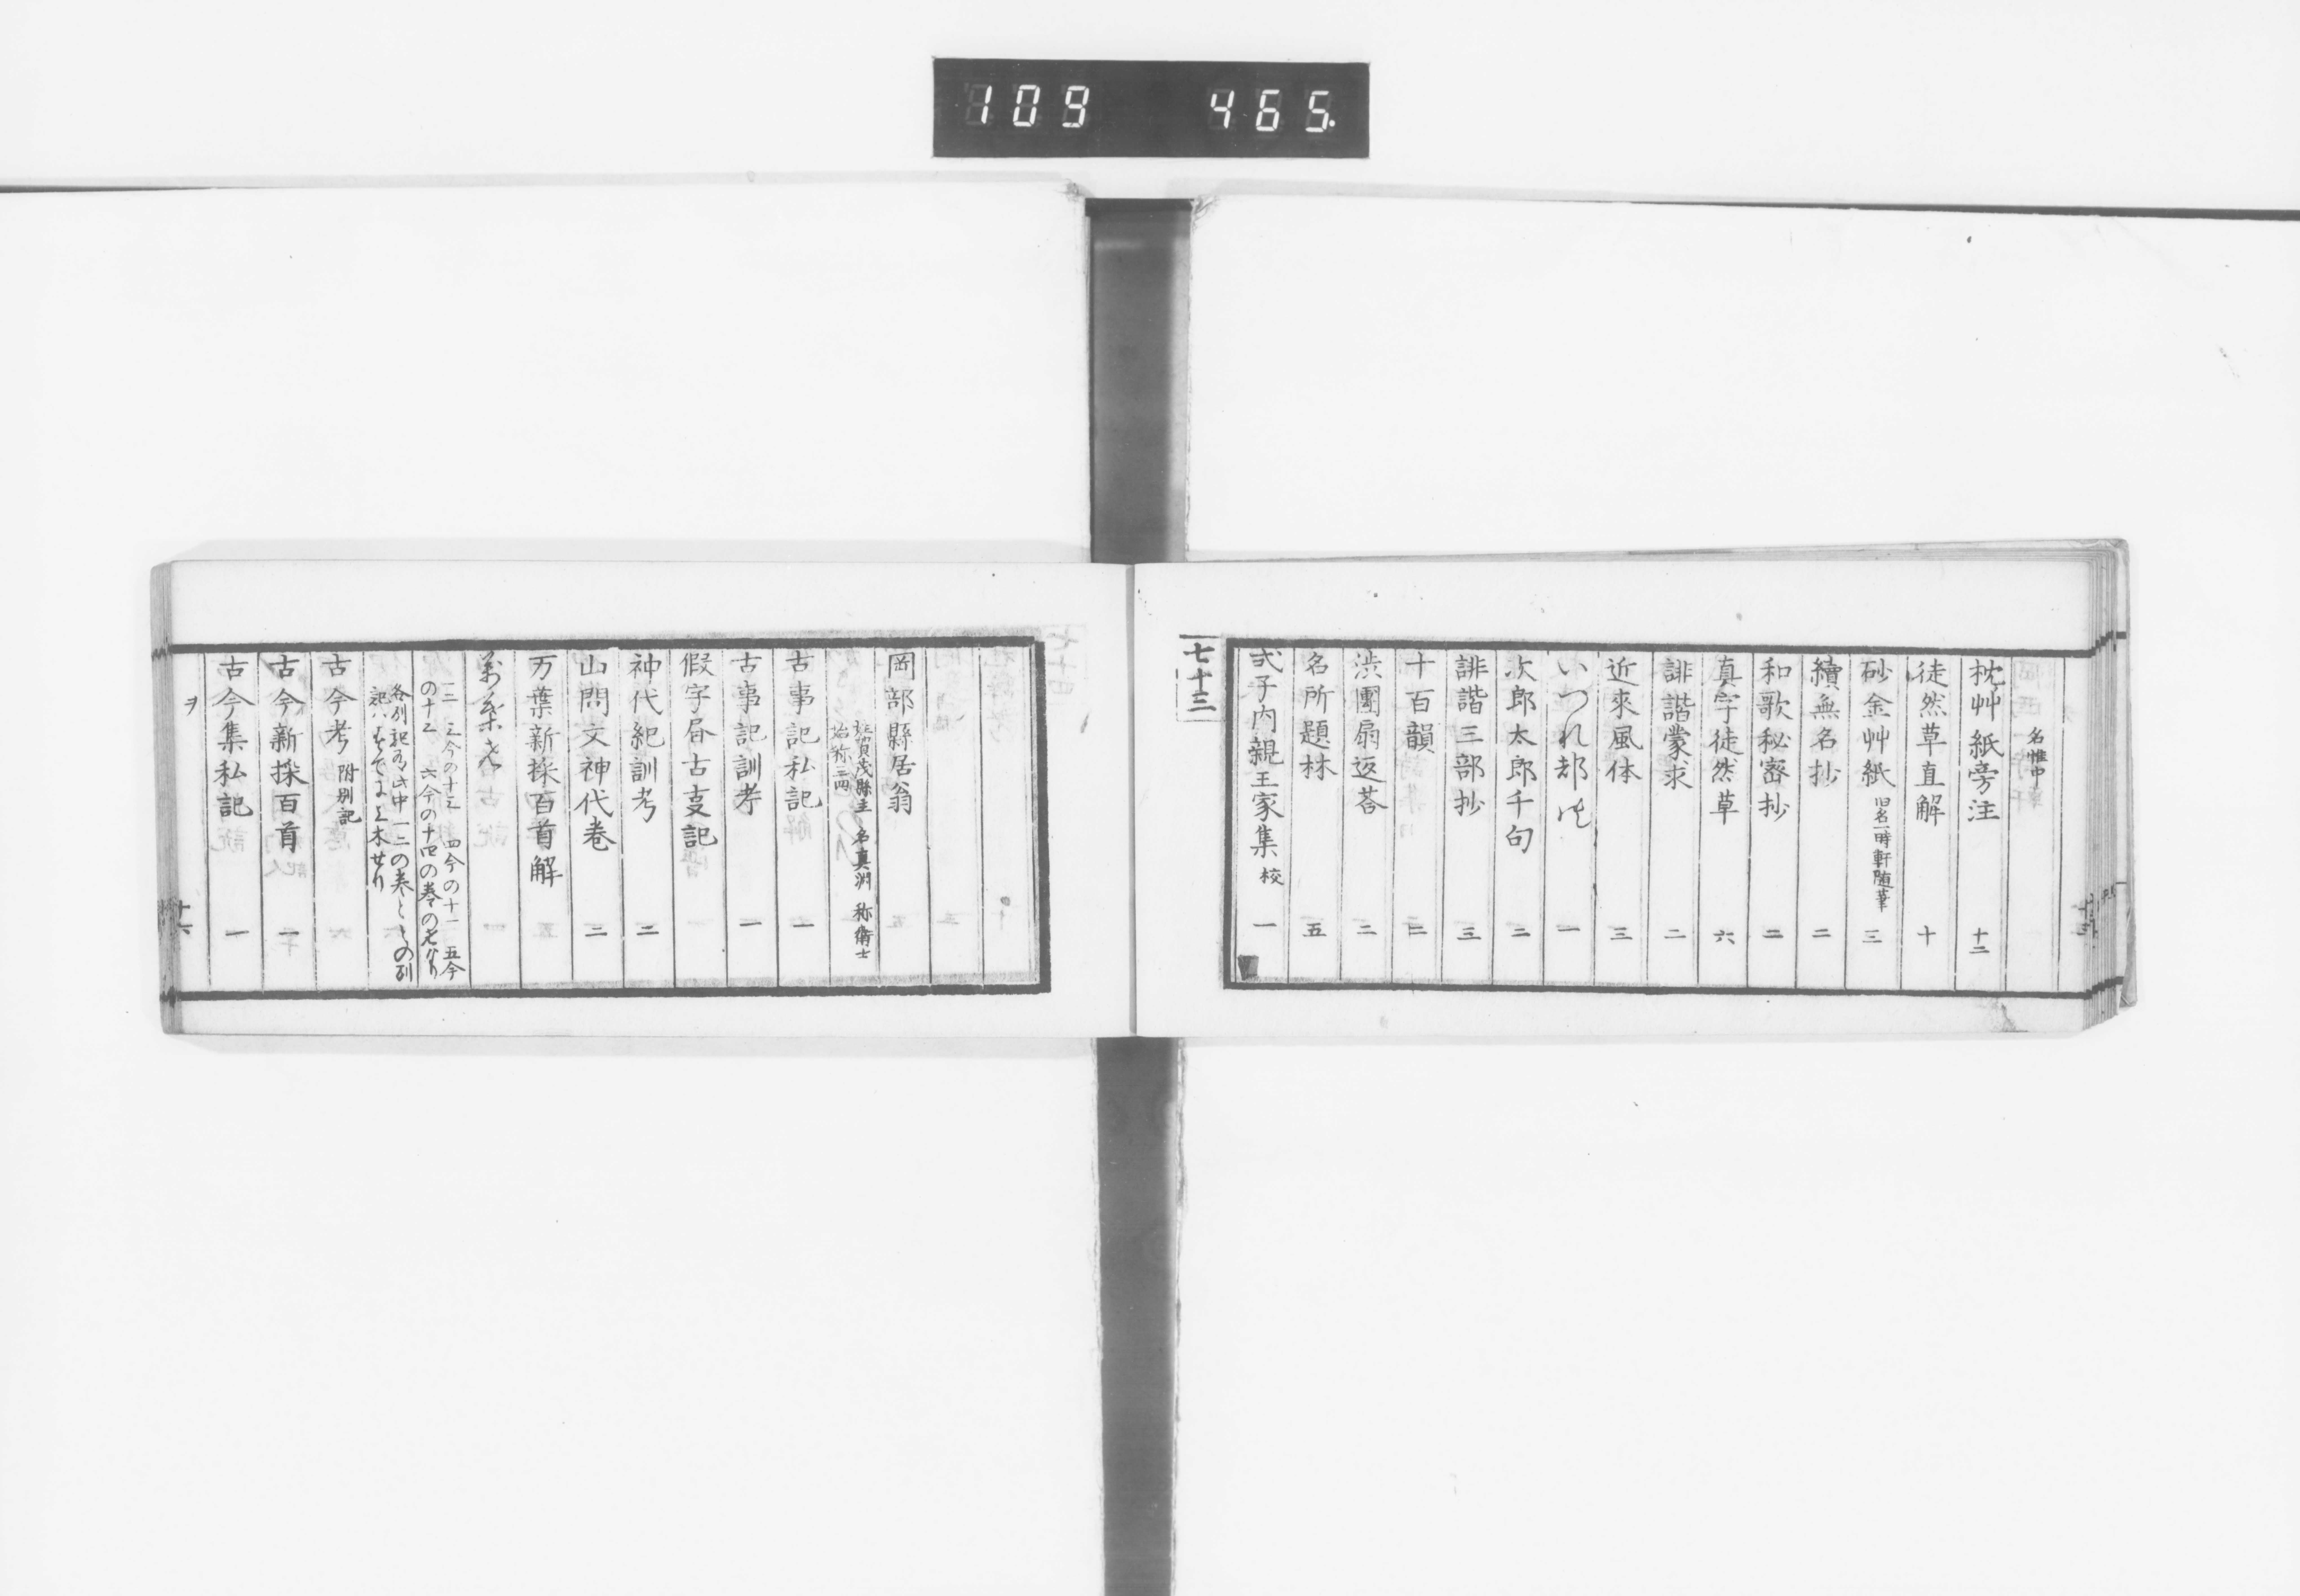 109 465
名惟中
枕艸紙旁注 十二
徒然草直解 十
砂金艸紙 旧名一時軒随筆 三
續無名抄 二
和歌秘密抄 二
真字徒然草 六
誹諧蒙求 二
近來風体 三
いつれ都 一
次郎太郎千句 二
誹諧三部抄 三
十百韻 三
渋團扇返荅 二
名所題林 五
弐子内親王家集 校 一
七十三
岡部縣居翁
賀茂縣主 名真淵 称衛士
始称三四
古事記私記 一
古事記訓考 一
假字昬古支記
神代紀訓考 二
山問文神代巻 二
万葉新採百首解
万葉考
一二 三今の十三 四今の十一 五今
の十二 六今の十四の巻の考なり
各別記有 此中一二の巻
古今考 附別記
古今新採百首 一
古今集私記 一
ヲ
十六